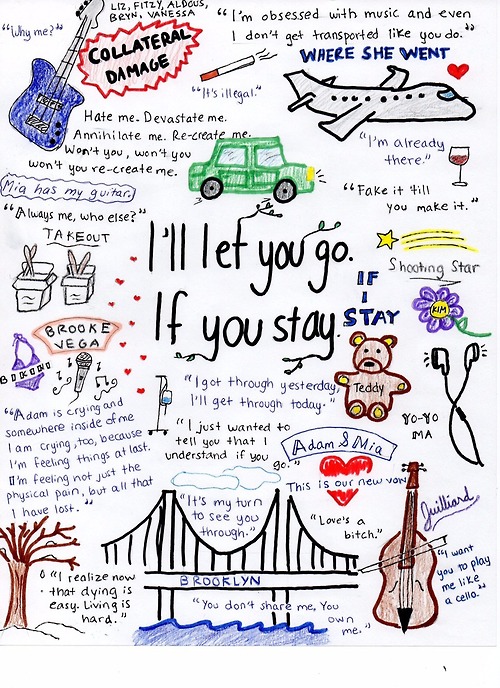 LIZ, FITZY, ALDOUS,
BRYN, VANESSA
"Why me?"
COLLATERAL
DAMAGE
"I'm obsessed with music and even
I don't get transported like you do."
WHERE SHE WENT
"It's illegal."
Hate me. Devastate me.
Annihilate me. Re-create me.
Won't you, won't you
won't you re-create me.
"I'm already
there."
Mia has my guitar.
"Fake it 'till
you make it."
"Always me, who else?"
TAKEOUT
I'll let you go.
If you stay.
Shooting Star
IF
I
STAY
KIM
BROOKE
VEGA
BIKINI
Teddy
"I got through yesterday,
I'll get through today."
YO-YO
MA
"Adam is crying and
somewhere inside of me
I am crying, too, because
I'm feeling things at last.
I'm feeling not just the
physical pain, but all that
I have lost."
"I just wanted to
tell you that I
understand if you
go."
Adam & Mia
This is our new van
"It's my turn
to see you
through."
"Love's a
bitch."
Juilliard
"I want
you to play
me like
a cello."
"I realize now
that dying is
easy. Living is
hard."
BROOKLYN
"You don't share me. You
own
me."